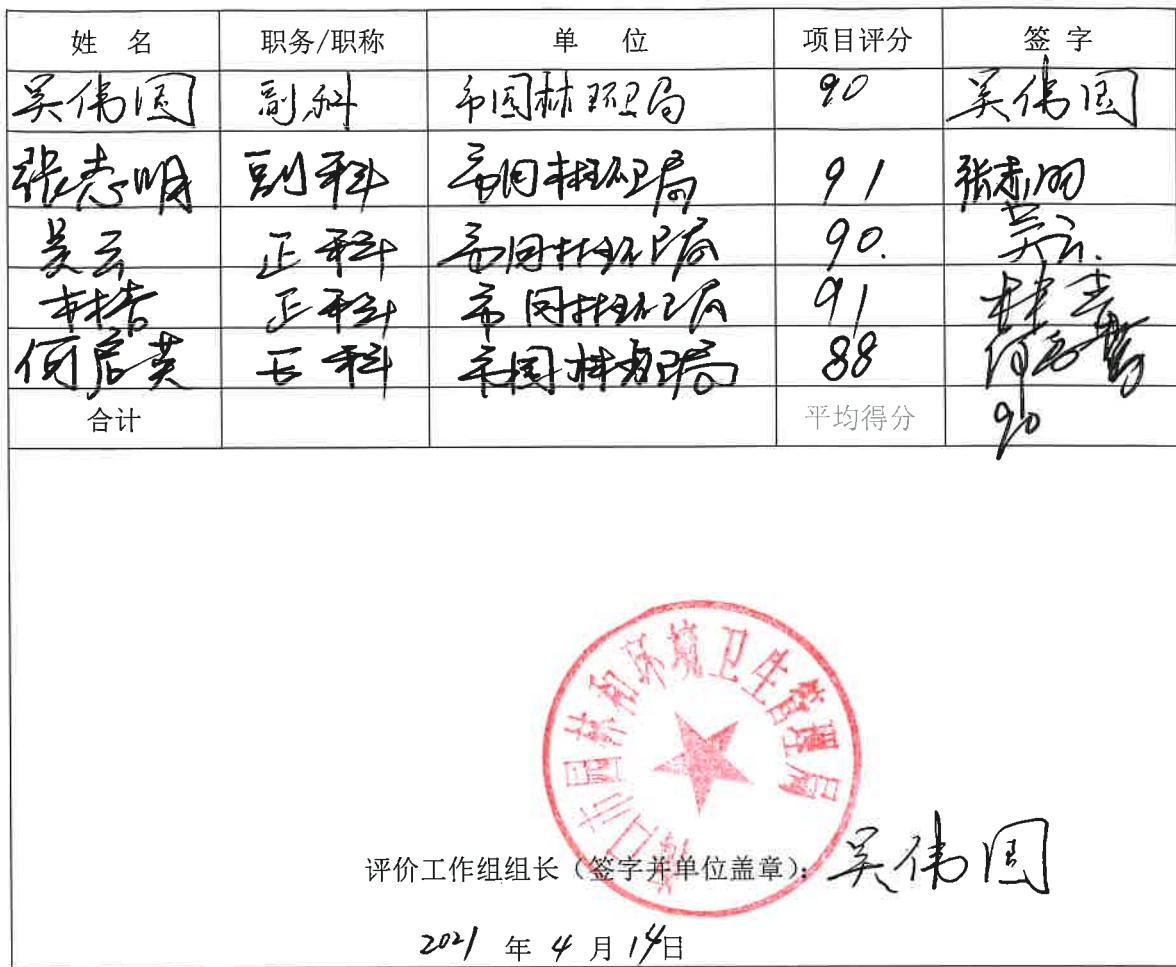 姓 名 职务/职称 单 位 项目评分 签 字
吴伟国 副科 市园林环卫局 90 吴伟国
张志明 副科 市园林环卫局 91 张志明
吴云 正科 市园林环卫局 90. 吴云.
林 正科 市园林环卫局 91 林
何 英 正科 市园林环卫局 88 何
合计 平均得分 90
市园林和环境卫生管理局
评价工作组组长（签字并单位盖章）： 吴伟国
2021 年 4 月 14日